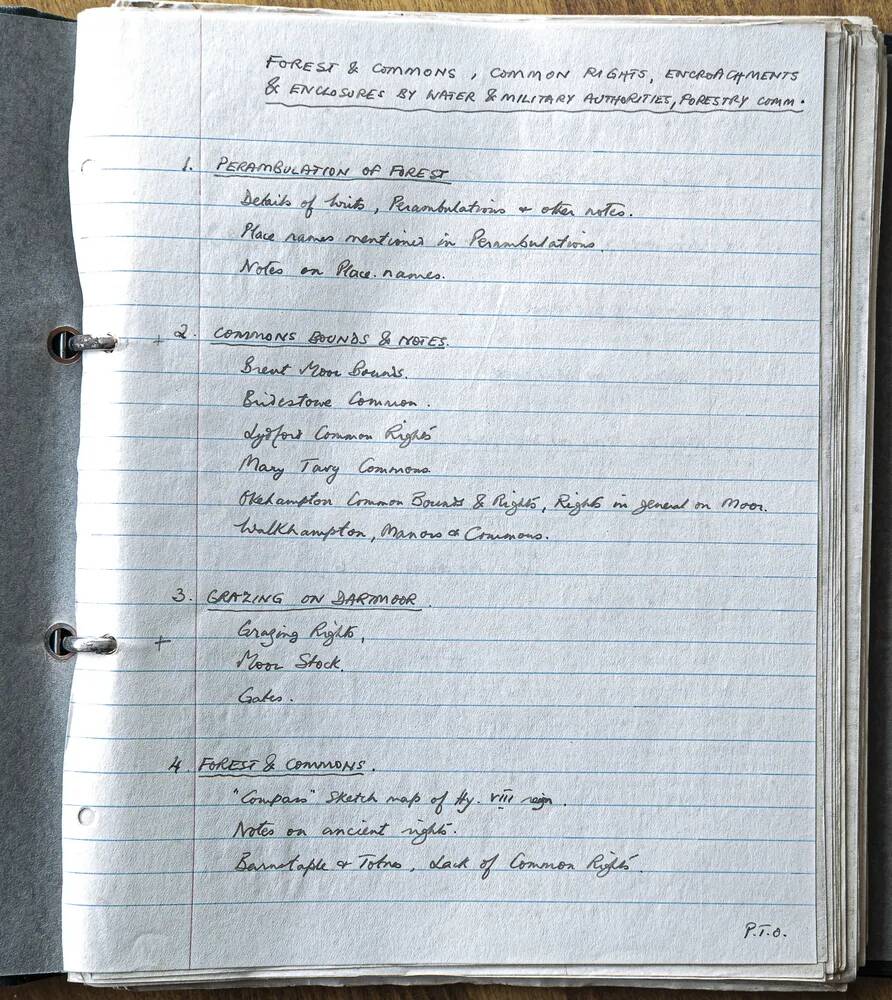 FOREST & COMMONS, COMMON RIGHTS, ENCROACHMENTS
& ENCLOSURES BY WATER & MILITARY AUTHORITIES, FORESTRY COMM.
1. PERAMBULATION OF FOREST
Details of Writs, Perambulations & other notes.
Place names mentioned in Perambulations.
Notes on Place-names.
+ 2. COMMONS BOUNDS & NOTES.
Brent Moor Bounds.
Bridestowe Common.
Lydford Common Rights
Mary Tavy Commons
Okehampton Common Bounds & Rights, Rights in general on Moor.
Walkhampton, Manors & Commons.
3. GRAZING ON DARTMOOR.
+ Grazing Rights,
Moor Stock.
Gates.
4. FOREST & COMMONS.
"Compass" Sketch map of Hy. VIII reign.
Notes on ancient rights.
Barnstaple & Totnes, Lack of Common Rights.
P.T.O.